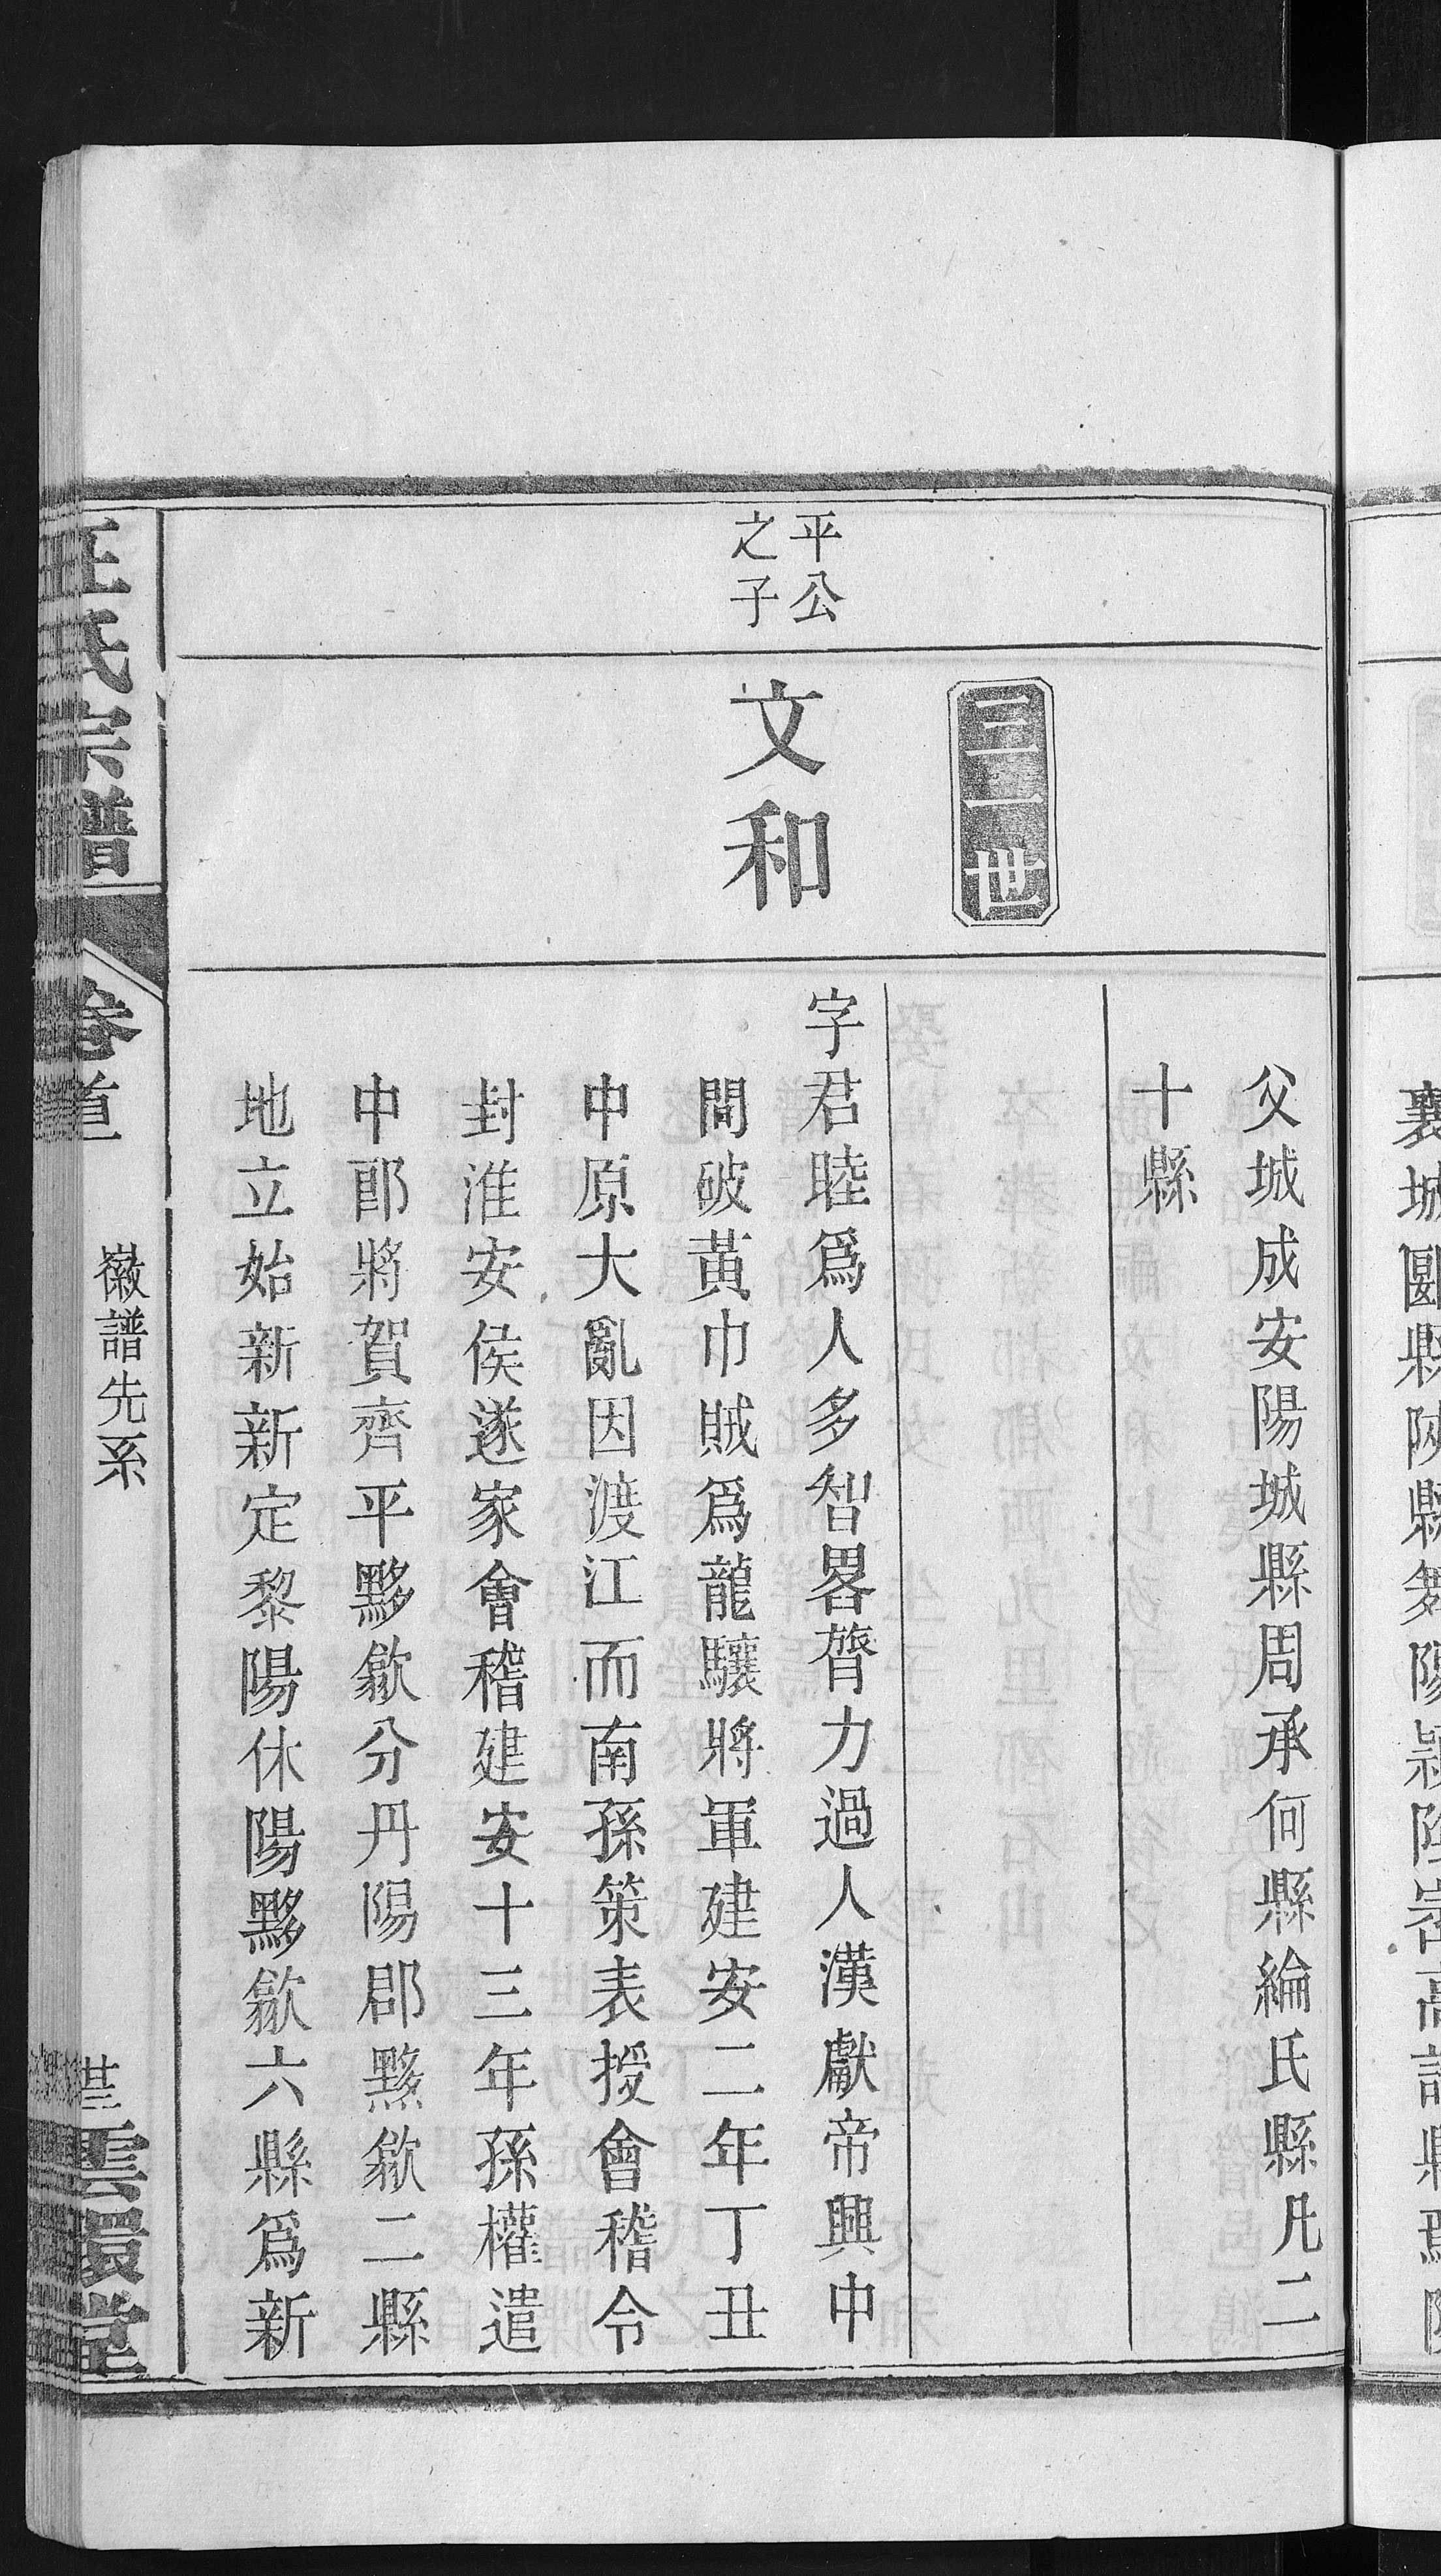 父城成安陽城縣周承何縣綸氏縣凡二
十縣
三一世
平公
之子
文和
字君睦爲人多智畧膂力過人漢獻帝興中
間破黃巾賊爲龍驤將軍建安二年丁丑
中原大亂因渡江而南孫策表授會稽令
封淮安侯遂家會稽建安十三年孫權遣
中郎將賀齊平黟歙分丹陽郡黟歙二縣
地立始新新定黎陽休陽黟歙六縣爲新
汪氏宗譜
卷首
徽譜先系
雲環堂
襄城郾縣陝縣舞陽潁陰崇高許縣鄢陵